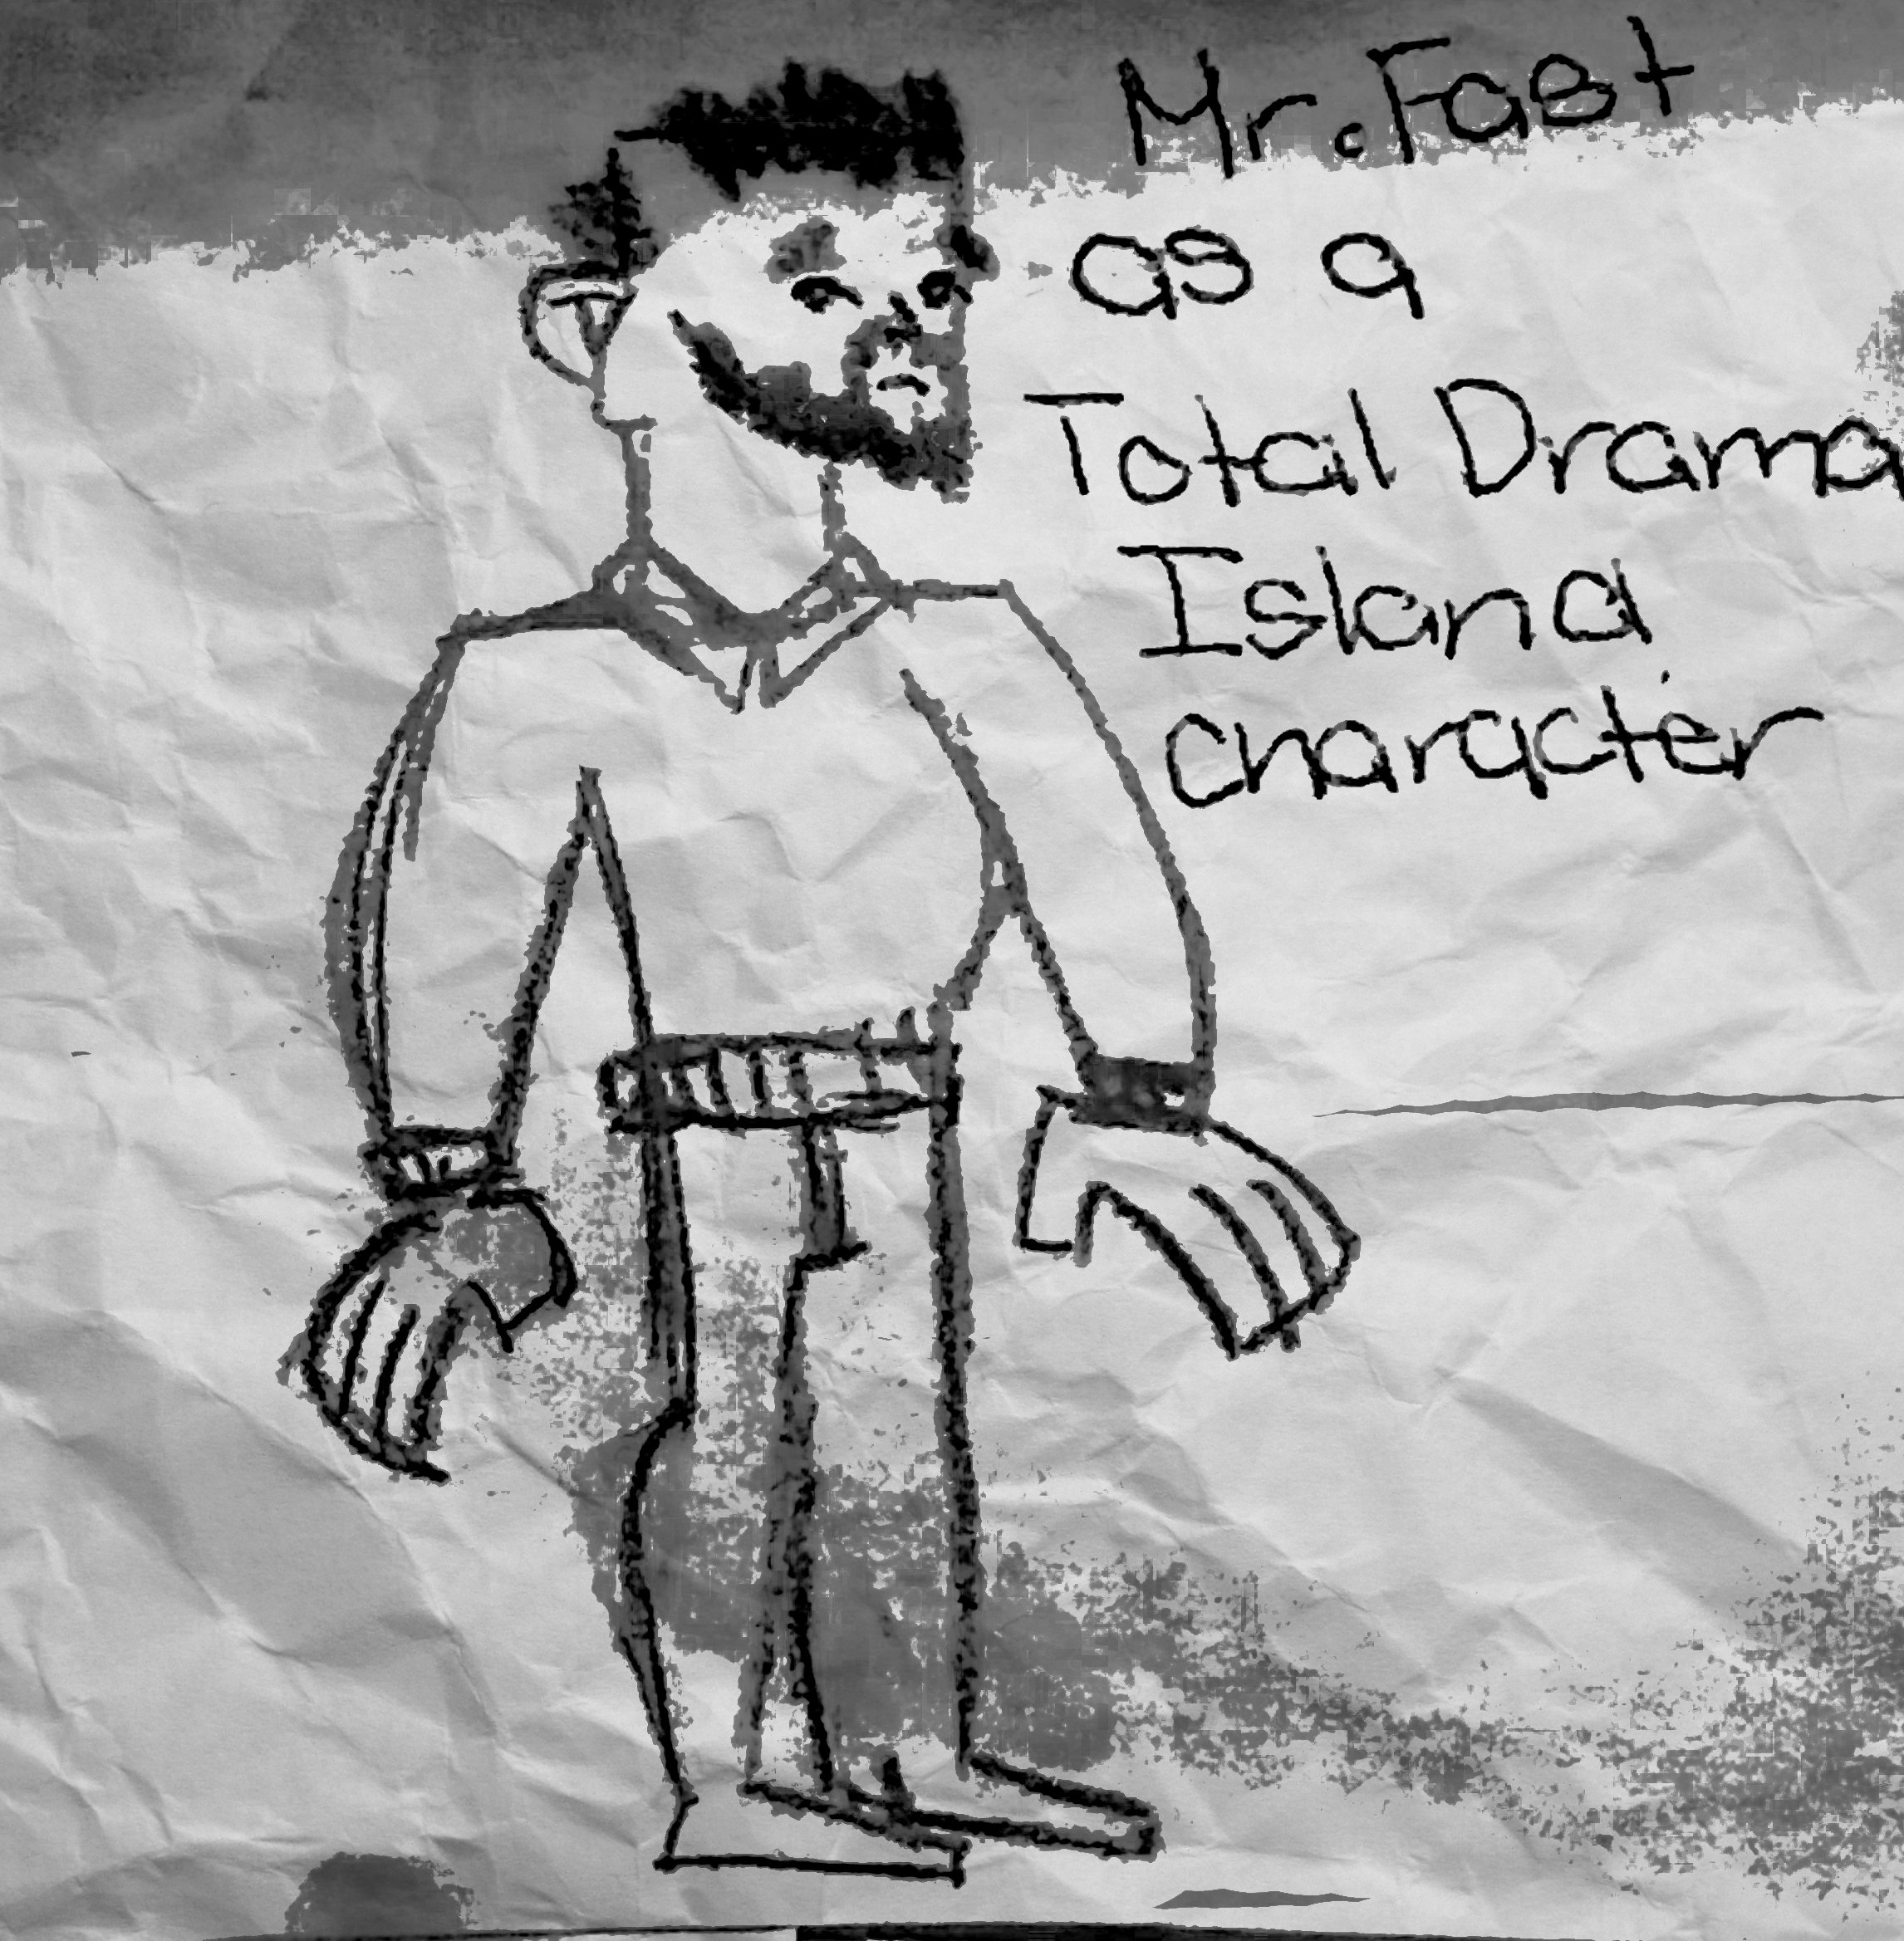 Mr. Fast
as a
Total Drama
Island
character